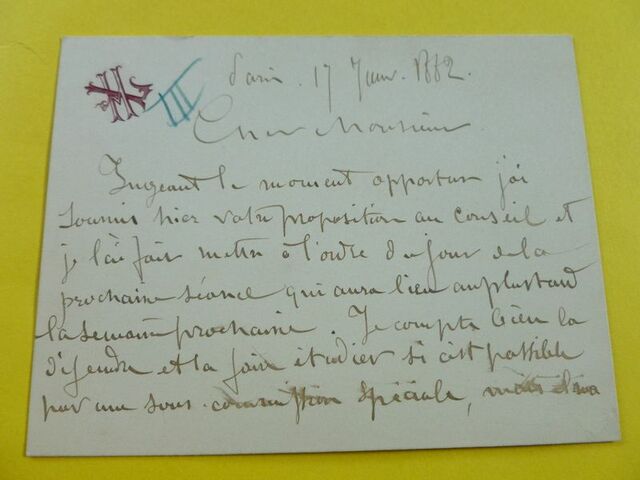 III
Paris. 17 Janv. 1882.
Cher Monsieur
Jugeant le moment opportun j'ai
soumis hier votre proposition au Conseil et
je l'ai fait mettre à l'ordre du jour de la
prochaine séance qui aura lieu au plus tard
la semaine prochaine. Je compte bien la
défendre et la faire étudier si c'est possible
par une sous-commission spéciale, mais